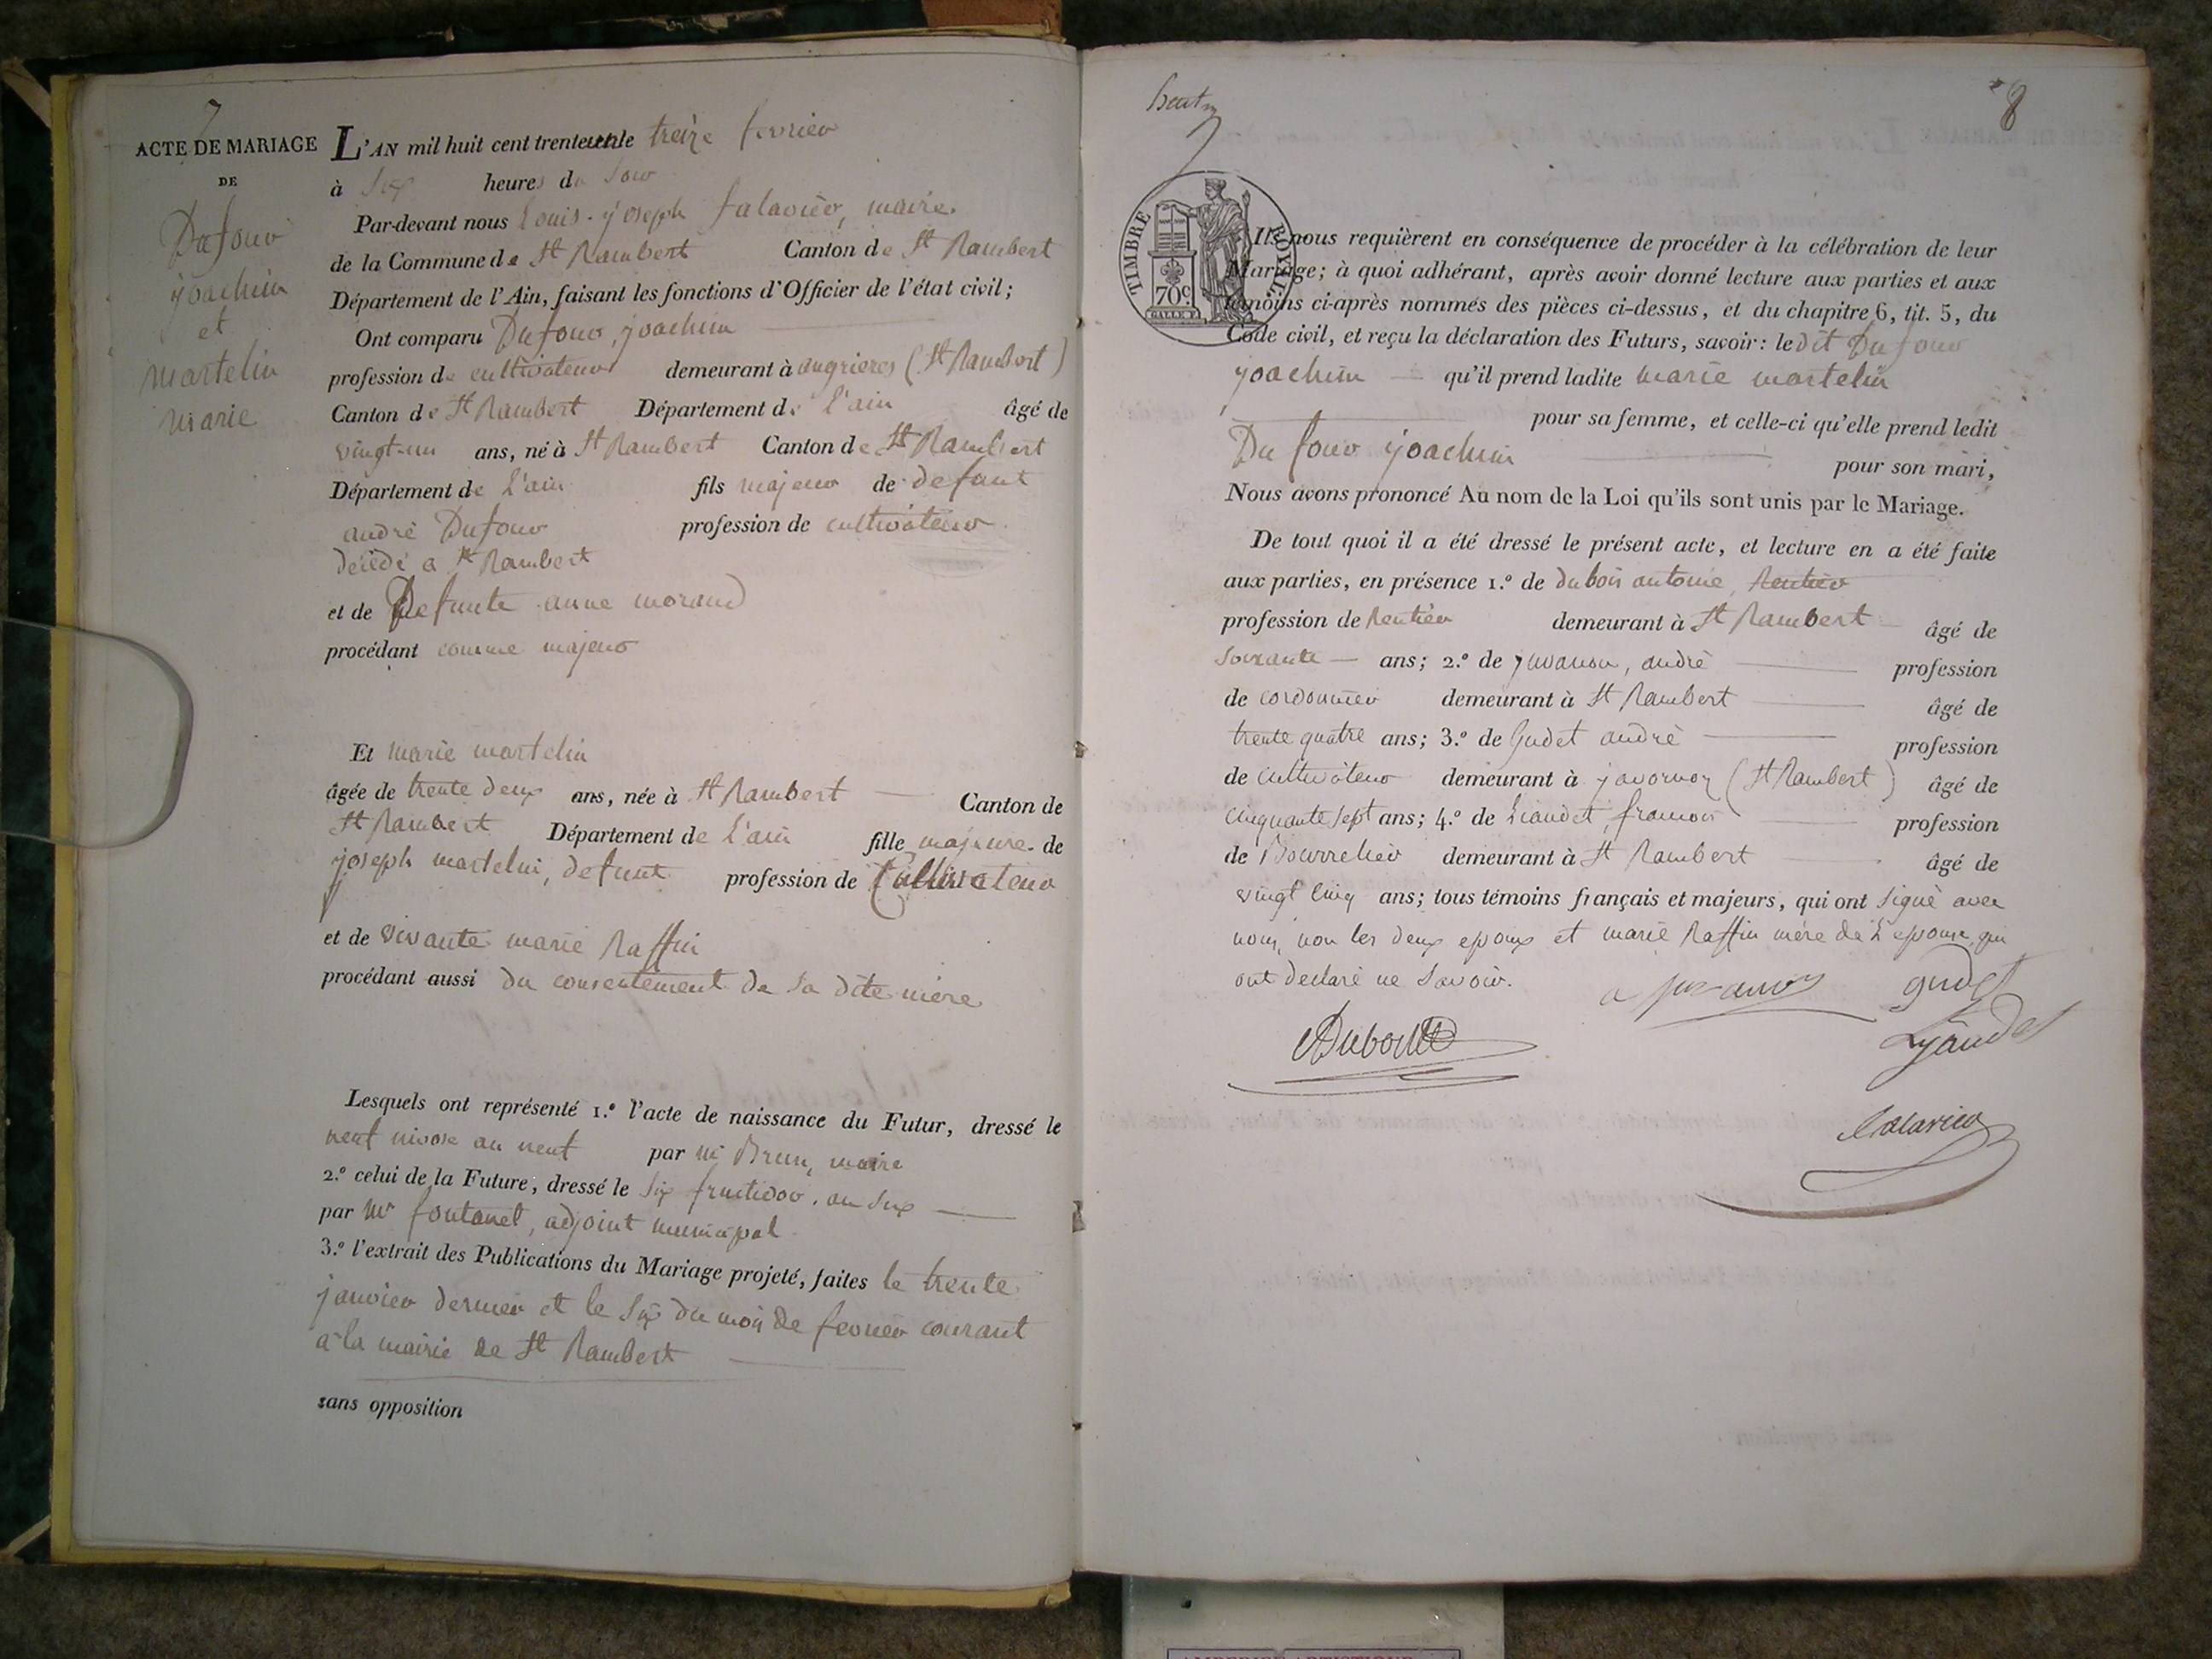 7
ACTE DE MARIAGE
DE
Dufour
joachim
et
martelin
marie
L'AN mil huit cent trente un le treize fevrier
à six heures du soir
Par-devant nous Louis-joseph falavier, maire
de la Commune de St Rambert Canton de St Rambert
Département de l'Ain, faisant les fonctions d'Officier de l'état civil;
Ont comparu Dufour, joachim
profession de cultivateur demeurant à angrieres (St Rambert)
Canton de St Rambert Département de l'ain âgé de
vingt-un ans, né à St Rambert Canton de St Rambert
Département de L'ain fils majeur de defunt
andré Dufour profession de cultivateur
décédé a St Rambert
et de Defunte anne morand
procédant comme majeur
Et marie martelin
âgée de trente deux ans, née à St Rambert Canton de
St Rambert Département de L'ain fille majeure de
joseph martelin, defunt profession de Cultivateur
et de vivante marie Raffin
procédant aussi du consentement de sa dite mère
Lesquels ont représenté 1.º l'acte de naissance du Futur, dressé le
neuf nivose an neuf par mr Brun, maire
2.º celui de la Future, dressé le six fructidor an six
par Mr fontanel, adjoint municipal
3.º l'extrait des Publications du Mariage projeté, faites le trente
janvier dernier et le six du mois de fevrier courant
a la mairie de St Rambert
sans opposition
8
TIMBRE ROYAL
70c
Ils nous requièrent en conséquence de procéder à la célébration de leur
Mariage; à quoi adhérant, après avoir donné lecture aux parties et aux
témoins ci-après nommés des pièces ci-dessus, et du chapitre 6, tit. 5, du
Code civil, et reçu la déclaration des Futurs, savoir: le dit Dufour
joachim qu'il prend ladite marie martelin
pour sa femme, et celle-ci qu'elle prend ledit
Dufour joachim pour son mari,
Nous avons prononcé Au nom de la Loi qu'ils sont unis par le Mariage.
De tout quoi il a été dressé le présent acte, et lecture en a été faite
aux parties, en présence 1.º de dubois antoine, Rentier
profession de Rentier demeurant à St Rambert âgé de
soixante ans; 2.º de juvanon, andré profession
de cordonnier demeurant à St Rambert âgé de
trente quatre ans; 3.º de Gudet andré profession
de cultivateur demeurant à javornoz (St Rambert) âgé de
cinquante sept ans; 4.º de Liaudet, francois profession
de Bourrelier demeurant à St Rambert âgé de
vingt cinq ans; tous témoins français et majeurs, qui ont signé avec
nous, non les deux epoux et marie Raffin mère de L'epouse, qui
ont declaré ne savoir.
a juvanon gudet
Dubois
Lyaudet